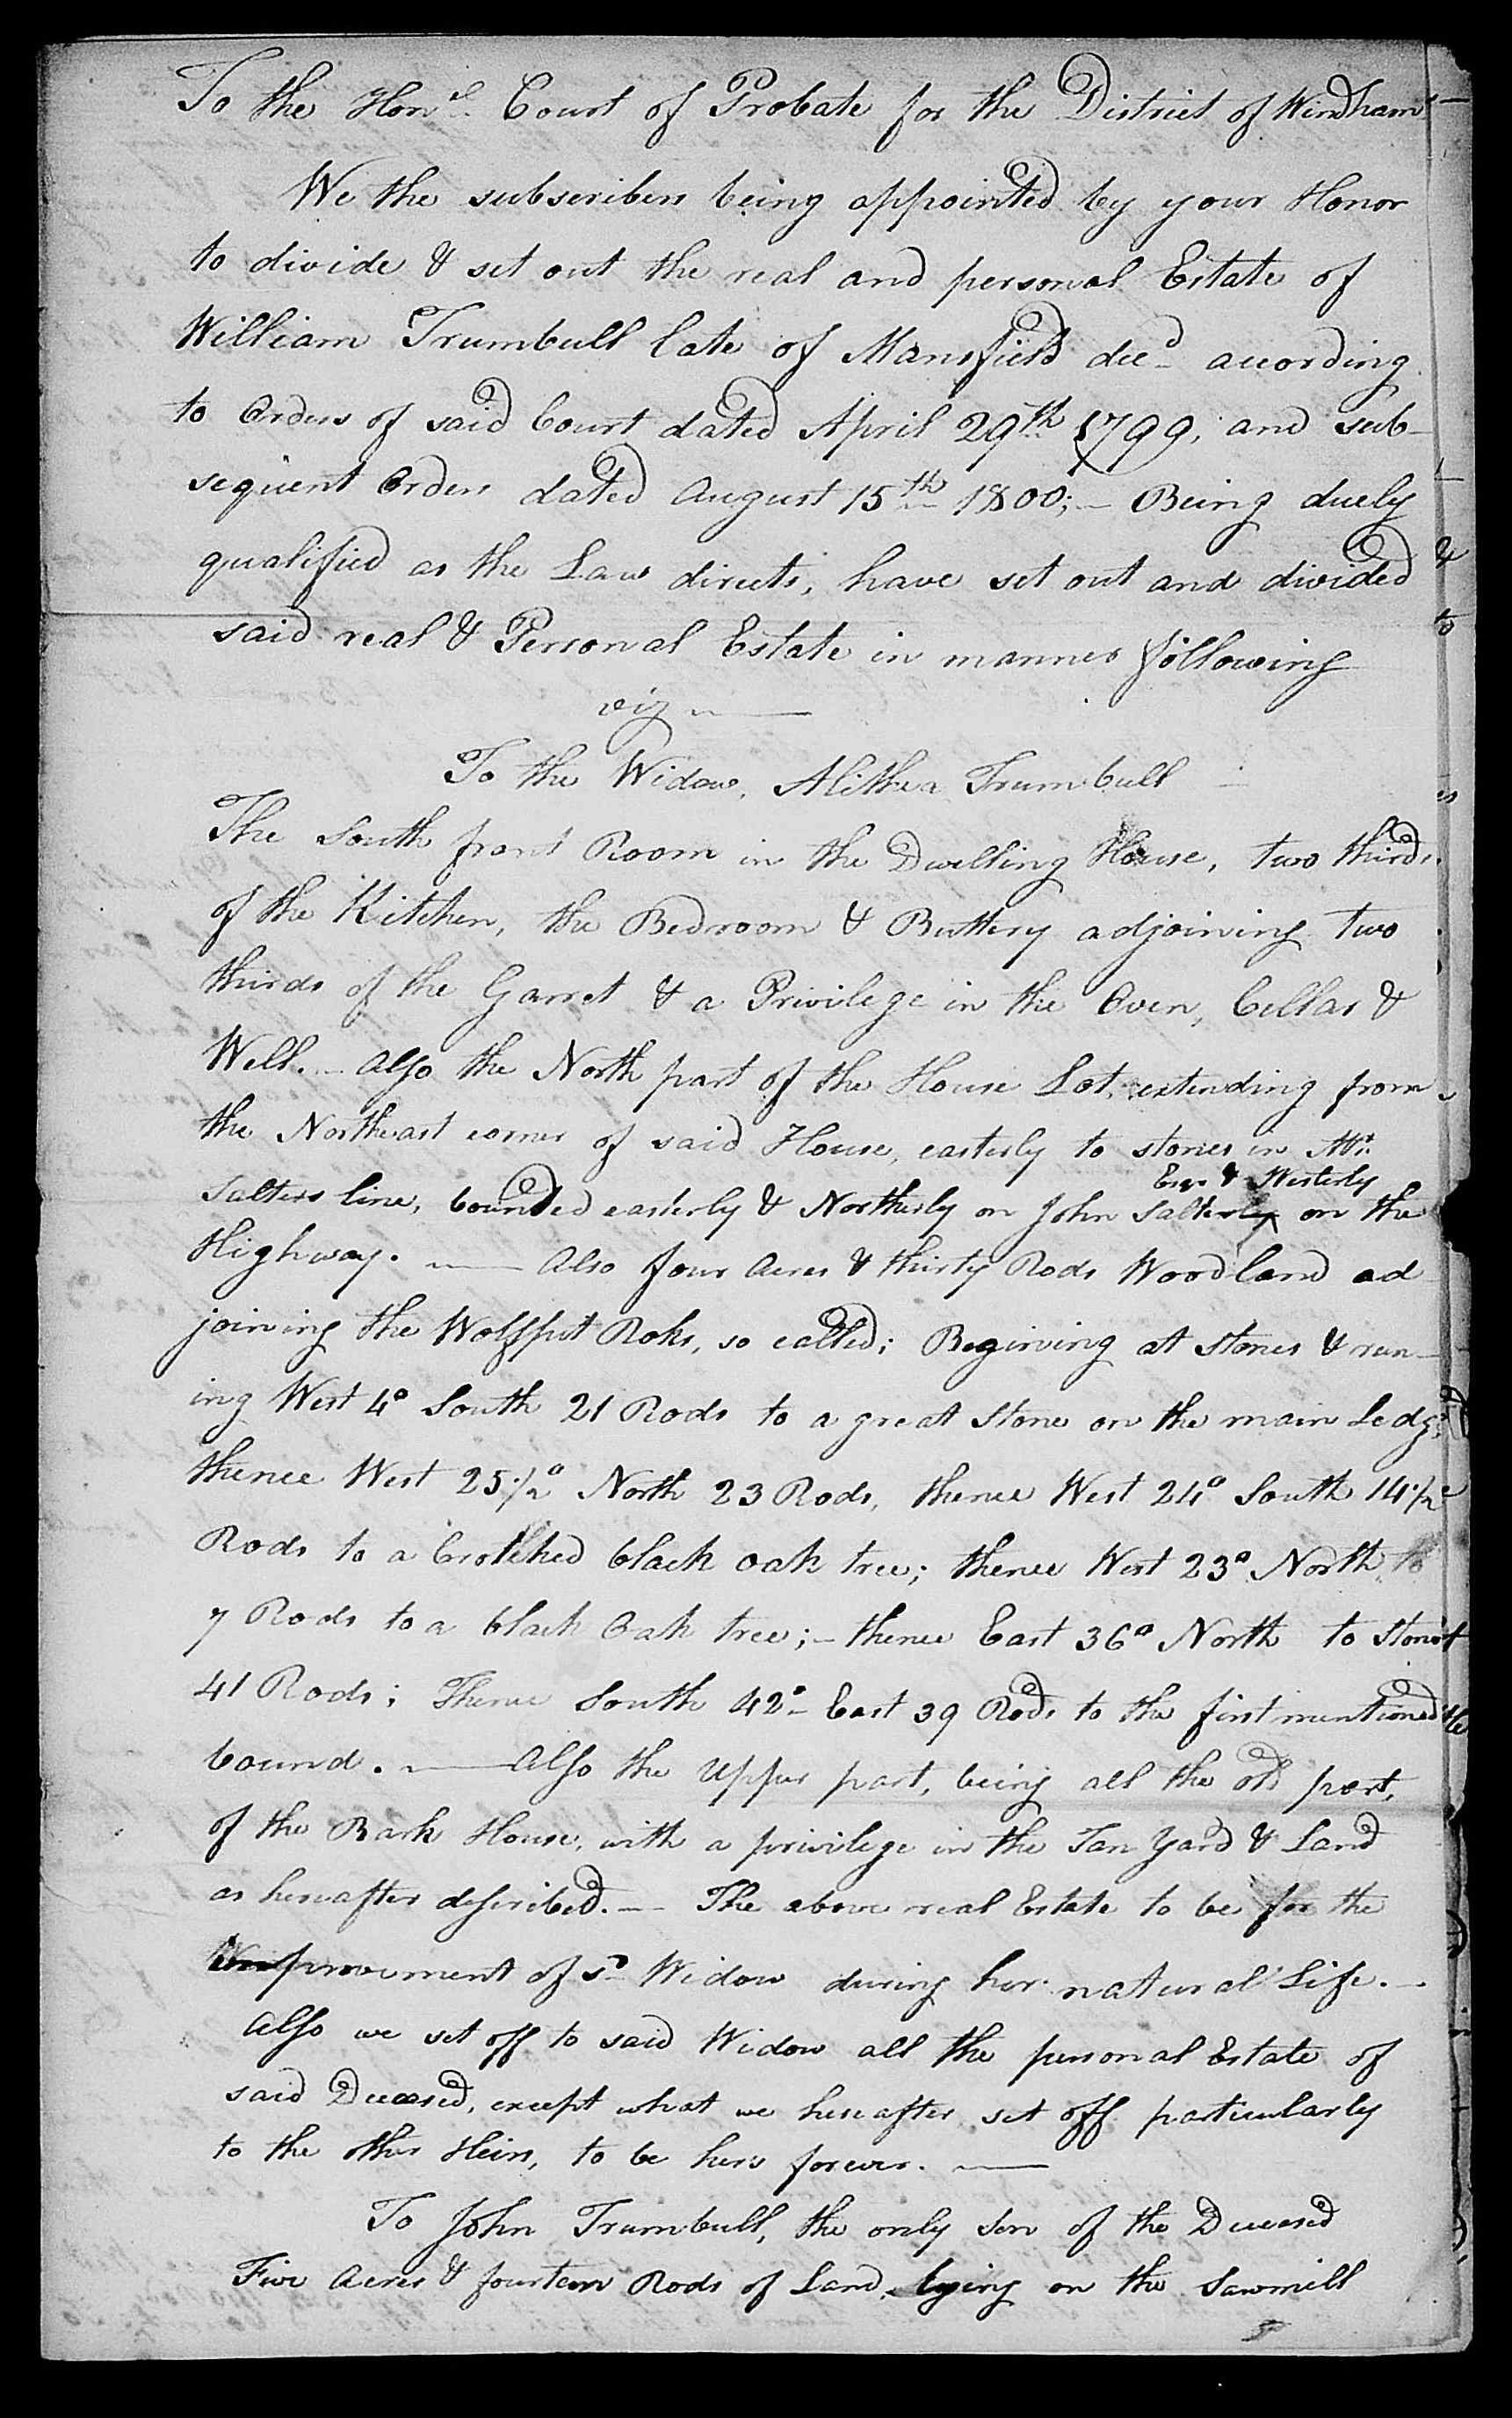 To the Honl. Court of Probate for the District of Windham
We the subscribers being appointed by your Honor
to divide & set out the real and personal Estate of
William Trumbull late of Mansfield decd according
to Orders of said Court dated April 29th 1799, and sub-
sequent Orders dated August 15th 1800; – Being duely
qualified as the Law directs, have set out and divided
said real & Personal Estate in manner following
viz –
To the Widow, Alithea Trumbull
The South front Room in the Dwelling House, two thirds
of the Kitchen, the Bedroom & Buttery adjoining two
thirds of the Garret & a Privilege in the Oven, Cellar &
Well. – Also the North part of the House Lot, extending from
the Northeast corner of said House, easterly to stones in Mr.
Esqr & Westerly
Salters line, bounded easterly & Northerly on John Salter on the
Highway. — Also four Acres & thirty Rods Woodland ad
joining the Wolfpit Roks, so called; Begining at stones & run-
ing West 4° South 21 Rods to a great Stone on the main Ledg,
thence West 25½° North 23 Rods, thence West 24° South 14½
Rods to a Crotched black oak tree; thence West 23° North
7 Rods to a black Oak tree; – thence East 36° North to Stones
41 Rods; Thence South 42° East 39 Rods to the first mentioned
bound. — Also the Upper part, being all the old part,
of the Bark House, with a privilege in the Tan Yard & Land
as hereafter described. – The above real Estate to be for the
Improvement of sd Widow during her natural Life. –
Also we set off to said Widow all the personal Estate of
said Deceased, except what we hereafter set off particularly
to the other Heirs, to be hers forever. —
To John Trumbull, the only Son of the Deceased
Five Acres & fourteen Rods of Land, lying on the Sawmill